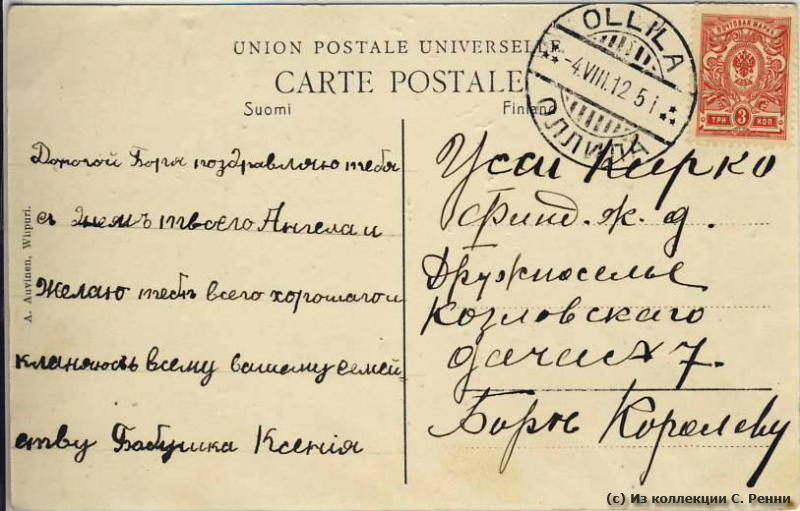 UNION POSTALE UNIVERSELLE
CARTE POSTALE
Suomi Finland
OLLILA
-4.VIII.12 5 i
ОЛЛИЛА
ПОЧТОВАЯ МАРКА
ТРИ 3 КОП.
A. Auvinen, Wiipuri.
Дорогой Боря поздравляю тебя
с Днемъ твоего Ангела и
Желаю тебѣ всего хорошаго и
кланяюсь всему вашему семей
ству Бабушка Ксенія
Усси Кирко
Финл. ж. д.
Дружноселье
Козловскаго
дача № 7.
Борѣ Королеву
(с) Из коллекции С. Ренни